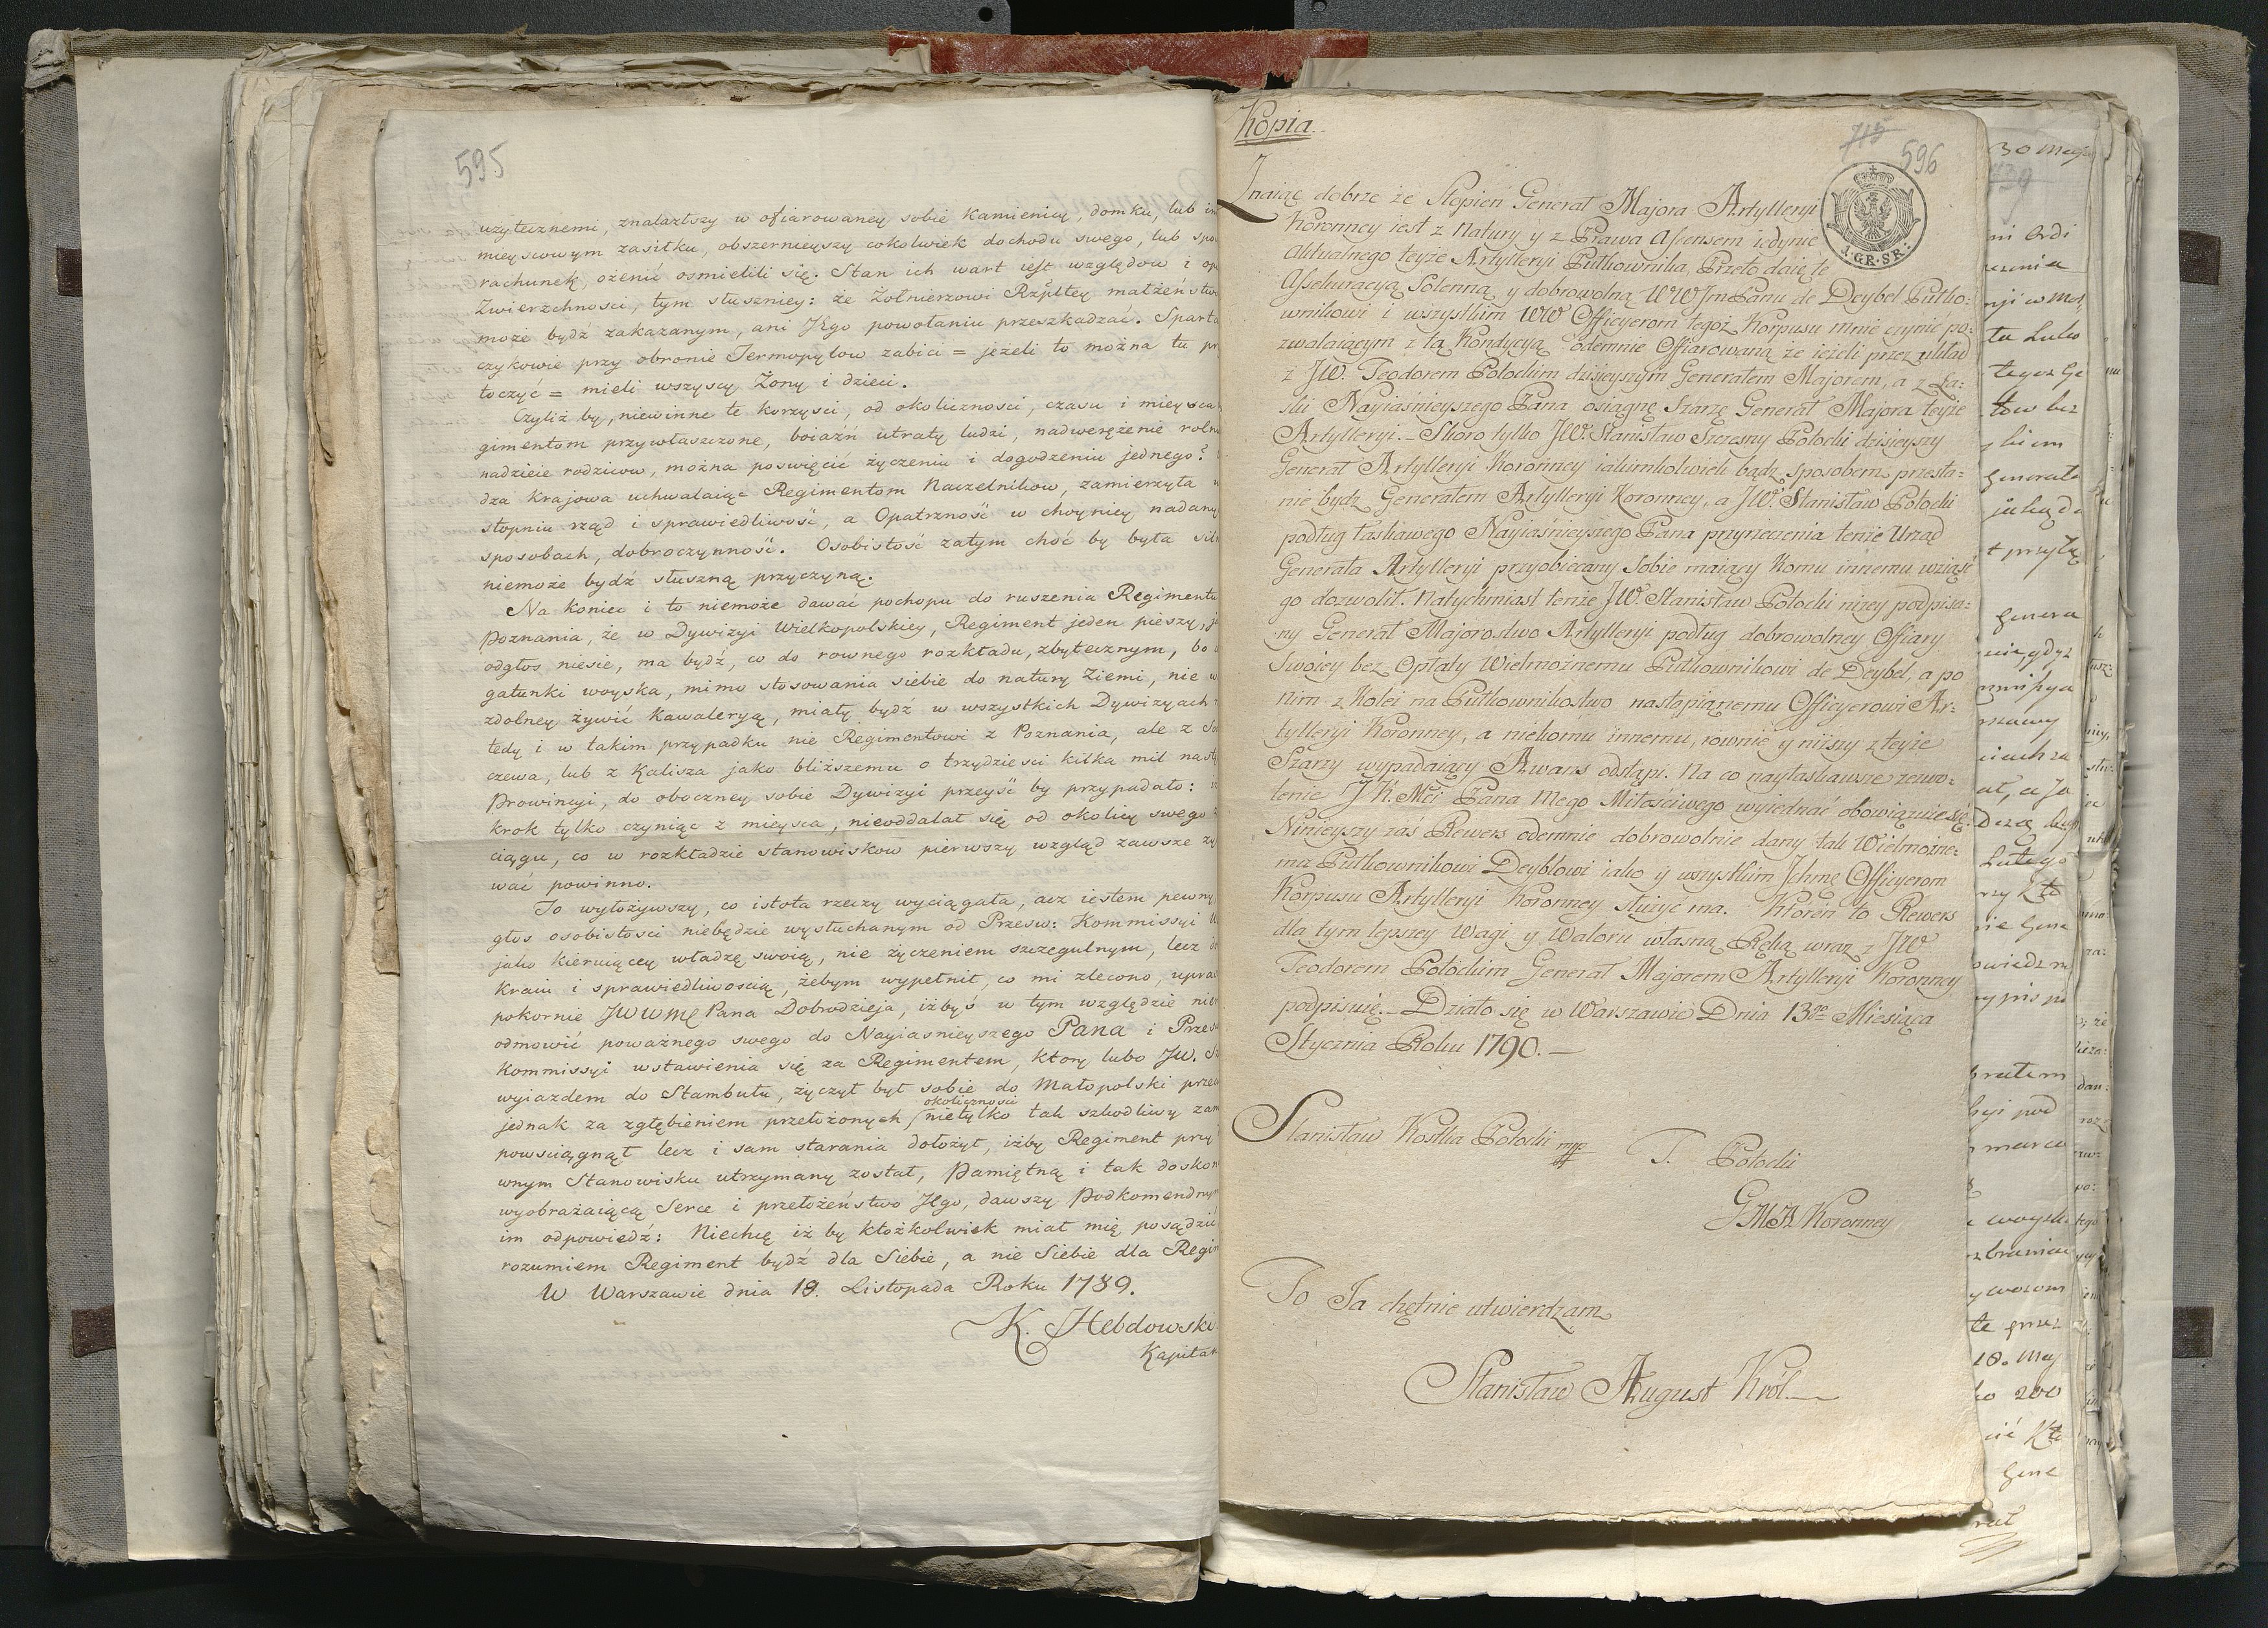 595
użytecznemi, znalazłszy w ofiarowaney sobie Kamienicy, domku, lub in
mieyscowym zasiłku, obszernieyszy cokolwiek dochodu swego, lub spo
rachunek, ożenić osmielili się. Stan ich wart iest względow i op
Zwierzchności, tym słuszniey: że Żołnierzowi Rzpltey małżeństwo
może bydź zakazanym, ani JEgo powołaniu przeszkadzać. Sparta
czykowie przy obronie Termopylow zabici = jeżeli to można tu pr
toczyć = mieli wszyscy Żony i dzieci.
Czyliż by, niewinne te korzyści, od okoliczności, czasu i mieysca
gimentom przywłaszczone, boiaźń utraty ludzi, nadwerężenie rolni
nadzieie rodzicow, można poswięcić życzeniu i dogodzeniu jednego?
dza Krajowa uchwalaiąc Regimentom Naczelnikow, zamierzyła w
stopniu rząd i sprawiedliwość, a Opatrzność w choyniey nadany
sposobach, dobroczynność. Osobistość zatym choć by była sil
niemoże bydź słuszną przyczyną.
Na koniec i to niemoże dawać pochopu do ruszenia Regimentu
Poznania, że w Dywizyi Wielkopolskiey, Regiment jeden pieszy, ja
odgłos niesie, ma bydź, co do rownego rozkładu, zbytecznym, bo
gatunki woyska, mimo stosowania siebie do natury Ziemi, nie w
zdolney żywić Kawaleryą, miały bydź w wszystkich Dywizyach
tedy i w takim przypadku nie Regimentowi z Poznania, ale z So
czewa, lub z Kalisza jako bliższemu o trzydzieści kilka mil nastę
Prowincyi, do oboczney sobie Dywizyi przeyść by przypadało:
krok tylko czyniąc z mieysca, nieoddalał się od okolicy swego
ciągu, co w rozkładzie stanowiskow pierwszy wzgląd zawsze zy
wać powinno.
To wyłożywszy, co istota rzeczy wyciągała, acz iestem pewny
głos osobistości niebędzie wysłuchanym od Przesw: Kommissyi
jako kieruiącey władzę swoią, nie życzeniem szczegulnym, lecz do
Kraiu i sprawiedliwością, żebym wypełnił, co mi zlecono, upras
pokornie JWWMć Pana Dobrodzieja, iżbyś w tym względzie nie
odmowić poważnego swego do Nayiasnieyszego Pana i Przesw
Kommissyi wstawienia się za Regimentem, ktory lubo JW. Sz
wyiazdem do Stambułu, życzył był sobie do Małopolski przec
okoliczności
jednak za zgłębieniem przełożonych, nietylko tak szkodliwy zam
powściągnął lecz i sam starania dołożył, iżby Regiment przy
wnym Stanowisku utrzymany został, Pamiętną i tak doskon
wyobrażaiącą Serce i przełożeństwo JEgo, dawszy Podkomendnym
im odpowiedź: Niechcę iż by ktożkolwiek miał mię posądzić
rozumiem Regiment bydź dla Siebie, a nie Siebie dla Regim
W Warszawie dnia 18. Listopada Roku 1789.
K. Hebdowski
Kapitan
Kopia.
713
596
A. GR. SR.
Znaiąc dobrze że Stopień Generał Majora Artylleryi
Koronney iest z Natury y z Prawa Assensem iedynie
Aktualnego teyże Artylleryi Pułkownika, Przeto daię tę
Assekuracyą Solenną y dobrowolną WWJmPanu de Deybel Pułko=
wnikowi i wszystkim WW Officyerom tegoż Korpusu mnie czynić po=
zwalaiącym z tą Kondycyą odemnie Offiarowaną że ieżeli przez układ
z JW. Teodorem Potockim dzisieyszym Generałem Majorem, a z Ła=
ski Nayiaśnieyszego Pana osiągnę Szarżę Generał Majora teyże
Artylleryi. Skoro tylko JW. Stanisław Szczęsny Potocki dzisieyszy
Generał Artylleryi Koronney iakimkolwiek bądz Sposobem przesta=
nie bydz Generałem Artylleryi Koronney, a JW. Stanisław Potocki
podług łaskawego Nayiaśnieyszego Pana przyrzeczenia tenże Urząd
Generała Artylleryi przyobiecany Sobie maiący Komu innemu wziąść
go dozwolił. Natychmiast tenże JW. Stanisław Potocki niżey podpisa=
ny Generał Majorostwo Artylleryi podług dobrowolney Offiary
Swoiey bez Opłaty Wielmożnemu Pułkownikowi de Deybel, a po
nim z Kolei na Pułkownikostwo nastąpianemu Officyerowi Ar=
tylleryi Koronney, a nikomu innemu, rownie y niższy z teyże
Szarży wypadaiący Awans odstąpi. Na co nayłaskawsze zezwo=
lenie J. K. Mci Pana Mego Miłościwego wyiednać obowiązuię się.
Ninieyszy zaś Rewers odemnie dobrowolnie dany tak Wielmożne=
mu Pułkownikowi Deyblowi iako y wszystkim Ichmć Officyerom
Korpusu Artylleryi Koronney służyć ma. Któren to Rewers
dla tym lepszey Wagi y Waloru własną Ręką wraz z JW
Teodorem Potockim Generał Majorem Artylleryi Koronney
podpisuię. Działo się w Warszawie Dnia 13go Miesiąca
Stycznia Roku 1790.
Stanisław Kostka Potocki mp.
T. Potocki
G.M.A. Koronney
To Ja chętnie utwierdzam
Stanisław August Król